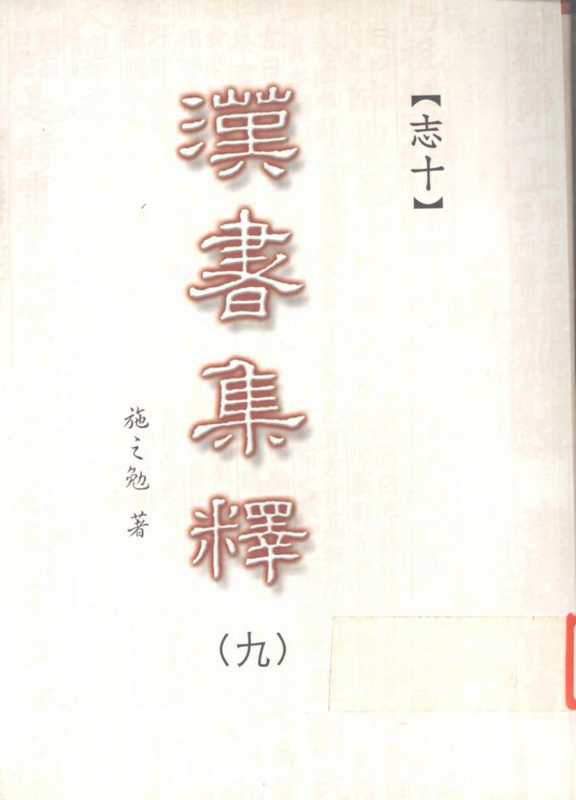 【志十】
漢書集釋
(九)
施之勉 著